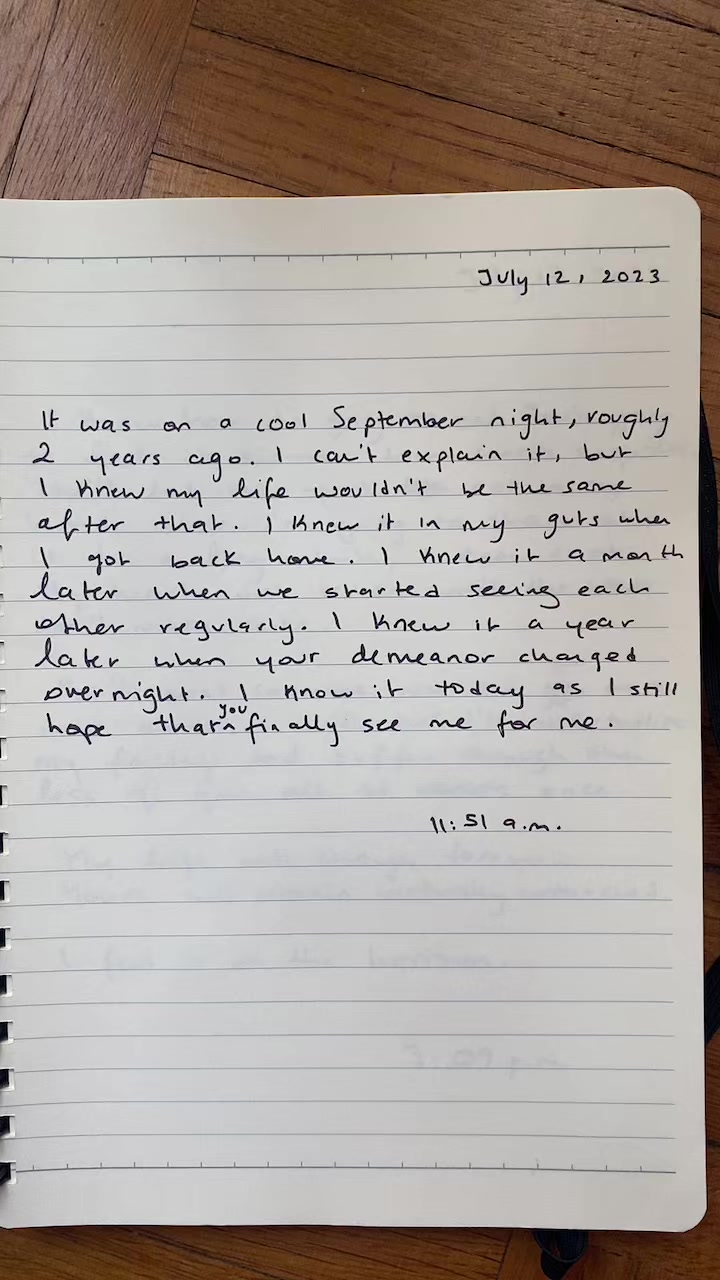 July 12, 2023
It was on a cool September night, roughly
2 years ago. I can't explain it, but
I knew my life wouldn't be the same
after that. I knew it in my guts when
I got back home. I knew it a month
later when we started seeing each
other regularly. I knew it a year
later when your demeanor changed
overnight. I know it today as I still
hope that you finally see me for me.
11:51 a.m.